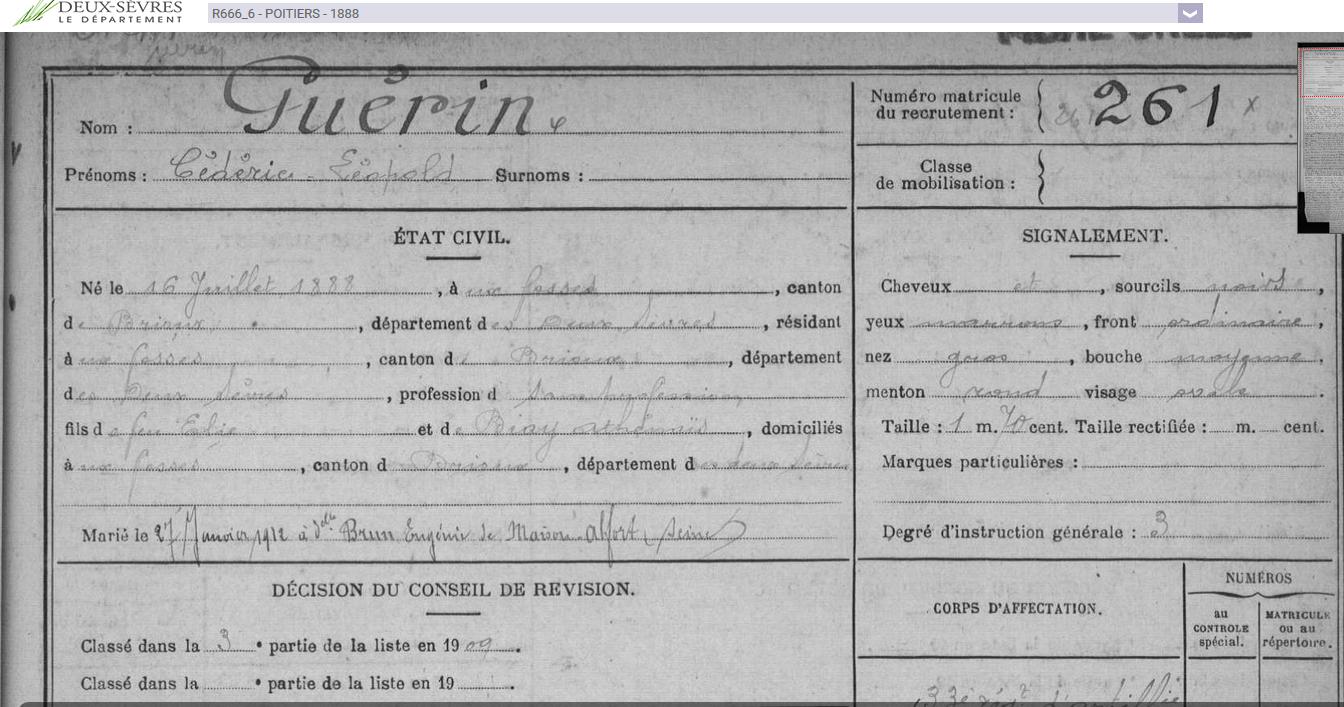 DEUX-SÈVRES
LE DÉPARTEMENT
R666_6 - POITIERS - 1888
Nom : Guérin
Prénoms : Cédéric - Léopold Surnoms :
Numéro matricule
du recrutement : 261 x
Classe
de mobilisation :
ÉTAT CIVIL.
Né le 16 Juillet 1888, à ux fosses, canton
de Brioux, département des Deux Sèvres, résidant
à ux fosses, canton de Brioux, département
des Deux Sèvres, profession d Sans profession
fils de feu Elie et de Athénaïs, domiciliés
à ux fosses, canton d Brioux, département des deux Sèvres
Marié le 27 Janvier 1912 à delle Brun Eugénie de Maison Alfort (Seine)
SIGNALEMENT.
Cheveux et, sourcils noirs,
yeux marrons, front ordinaire,
nez gros, bouche moyenne,
menton rond visage ovale.
Taille : 1 m. 70 cent. Taille rectifiée : m. cent.
Marques particulières :
Degré d'instruction générale : 3
DÉCISION DU CONSEIL DE REVISION.
Classé dans la 3 e partie de la liste en 1909.
Classé dans la e partie de la liste en 19 .
CORPS D'AFFECTATION.
NUMÉROS
au
CONTROLE
spécial.
MATRICULE
ou au
répertoire.